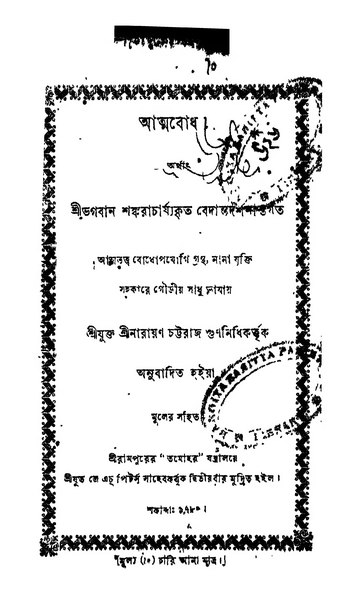 আত্মবোধ।
অর্থাৎ
শ্রীভগবান শঙ্করাচার্য্যকৃত বেদান্তদর্শনান্তর্গত
আত্মতত্ত্ব বোধোপযোগি গ্রন্থ, নানা যুক্তি
সহকারে গৌড়ীয় সাধু ভাষায়
শ্রীযুক্ত শ্রীনারায়ণ চট্টরাজ গুণনিধিকর্ত্তৃক
অনুবাদিত হইয়া
মূলের সহিত
শ্রীরামপুরের "তমোহর" যন্ত্রালয়ে
শ্রীযুত জে এচ্ পিটর্স সাহেবকর্ত্তৃক দ্বিতীয়বার মুদ্রিত হইল।
শকাব্দাঃ ১৭৮০।
[মূল্য (।০) চারি আনা মাত্র।]